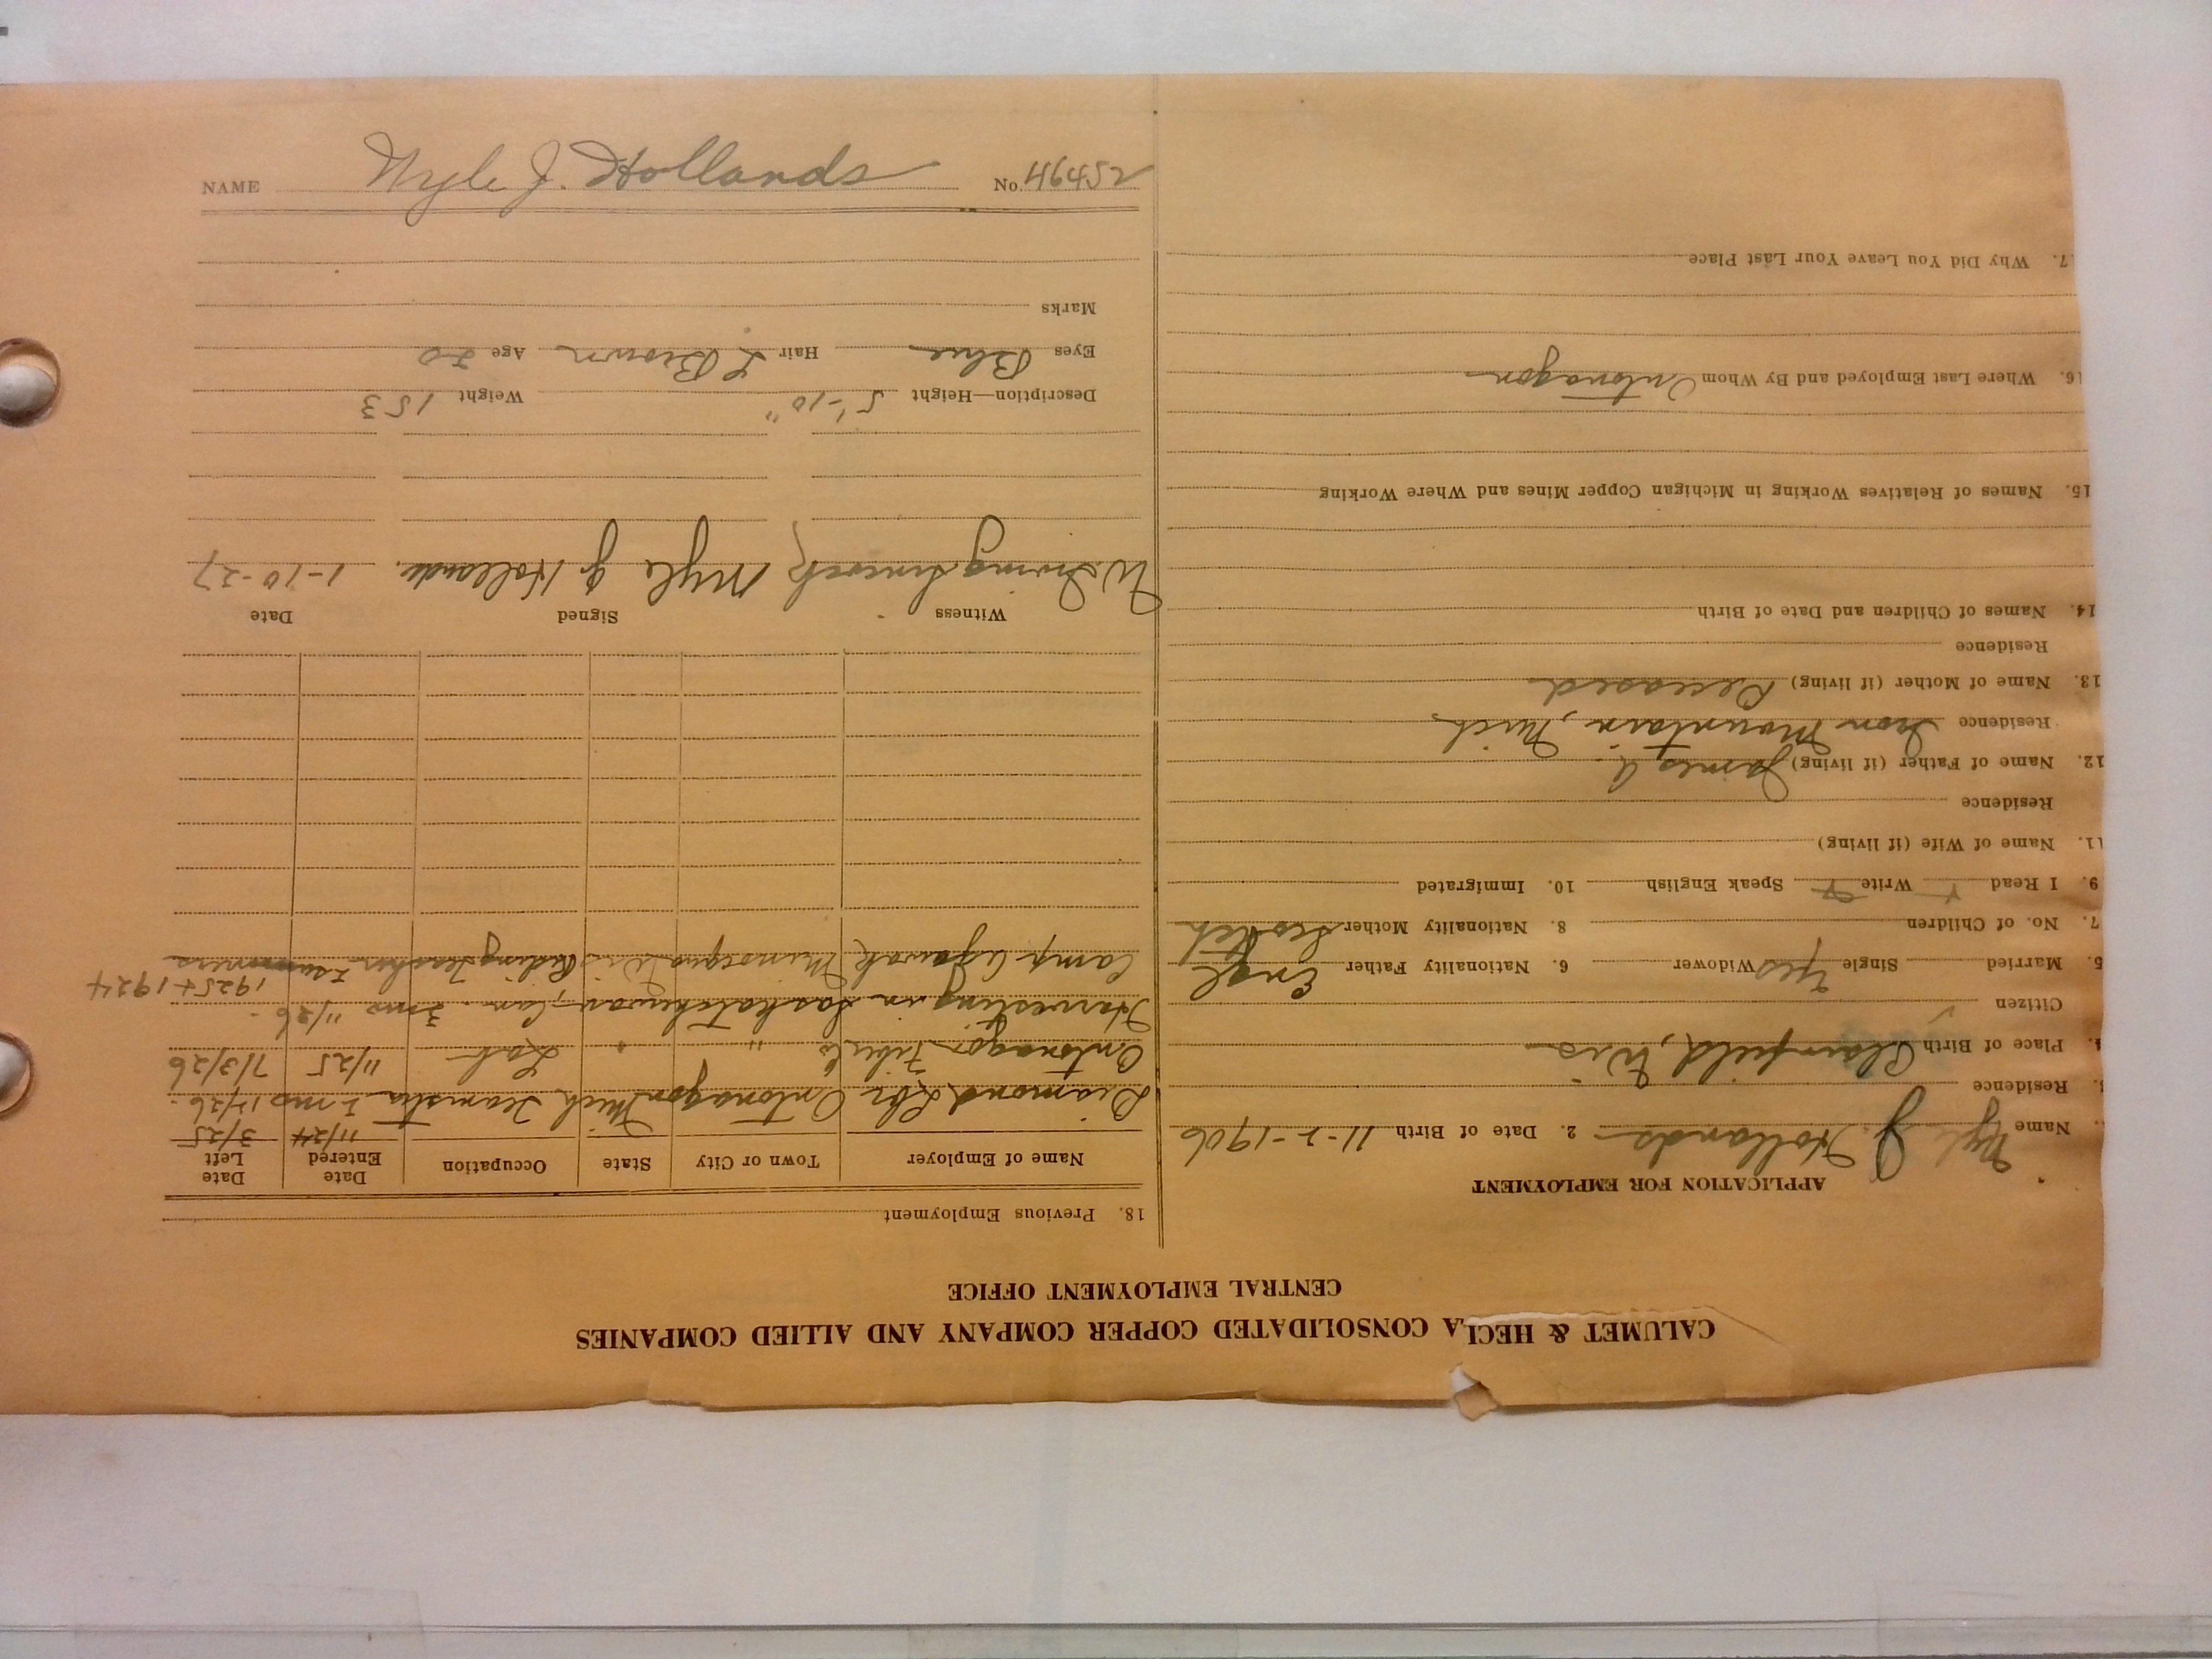 CALUMET & HECLA CONSOLIDATED COPPER COMPANY AND ALLIED COMPANIES
CENTRAL EMPLOYMENT OFFICE
APPLICATION FOR EMPLOYMENT
Name Nyle J. Hollands 2. Date of Birth 11-2-1906
3. Residence
4. Place of Birth Plainfield, Wis
Citizen
5. Married Single Yes Widower 6. Nationality Father Engl
7. No. of Children 8. Nationality Mother Scotch
9. I Read Write Speak English 10. Immigrated
11. Name of Wife (if living)
Residence
12. Name of Father (if living) James A.
Residence Iron Mountain, Mich
13. Name of Mother (if living) Deceased
Residence
14. Names of Children and Date of Birth
15. Names of Relatives Working in Michigan Copper Mines and Where Working
16. Where Last Employed and By Whom Ontonagon
17. Why Did You Leave Your Last Place
18. Previous Employment
Name of Employer Town or City State Occupation Date Entered Date Left
11/24 3/25
Diamond Lbr Ontonagon Mich Teamster 2 mo 12/26.
Ontonagon Fibre Co " " Lab 11/25 7/3/26
Harvesting in Saskatchewan, Can. 3 mo 11/26.
Camp Minocqua Wis Riding Teacher 2 summers 1925 + 1924
Witness Signed Date
W. Irving Nyle J Hollands. 1-10-27
Description—Height 5'-10" Weight 153
Eyes Blue Hair L Brown Age 20
Marks
NAME Nyle J. Hollands No.